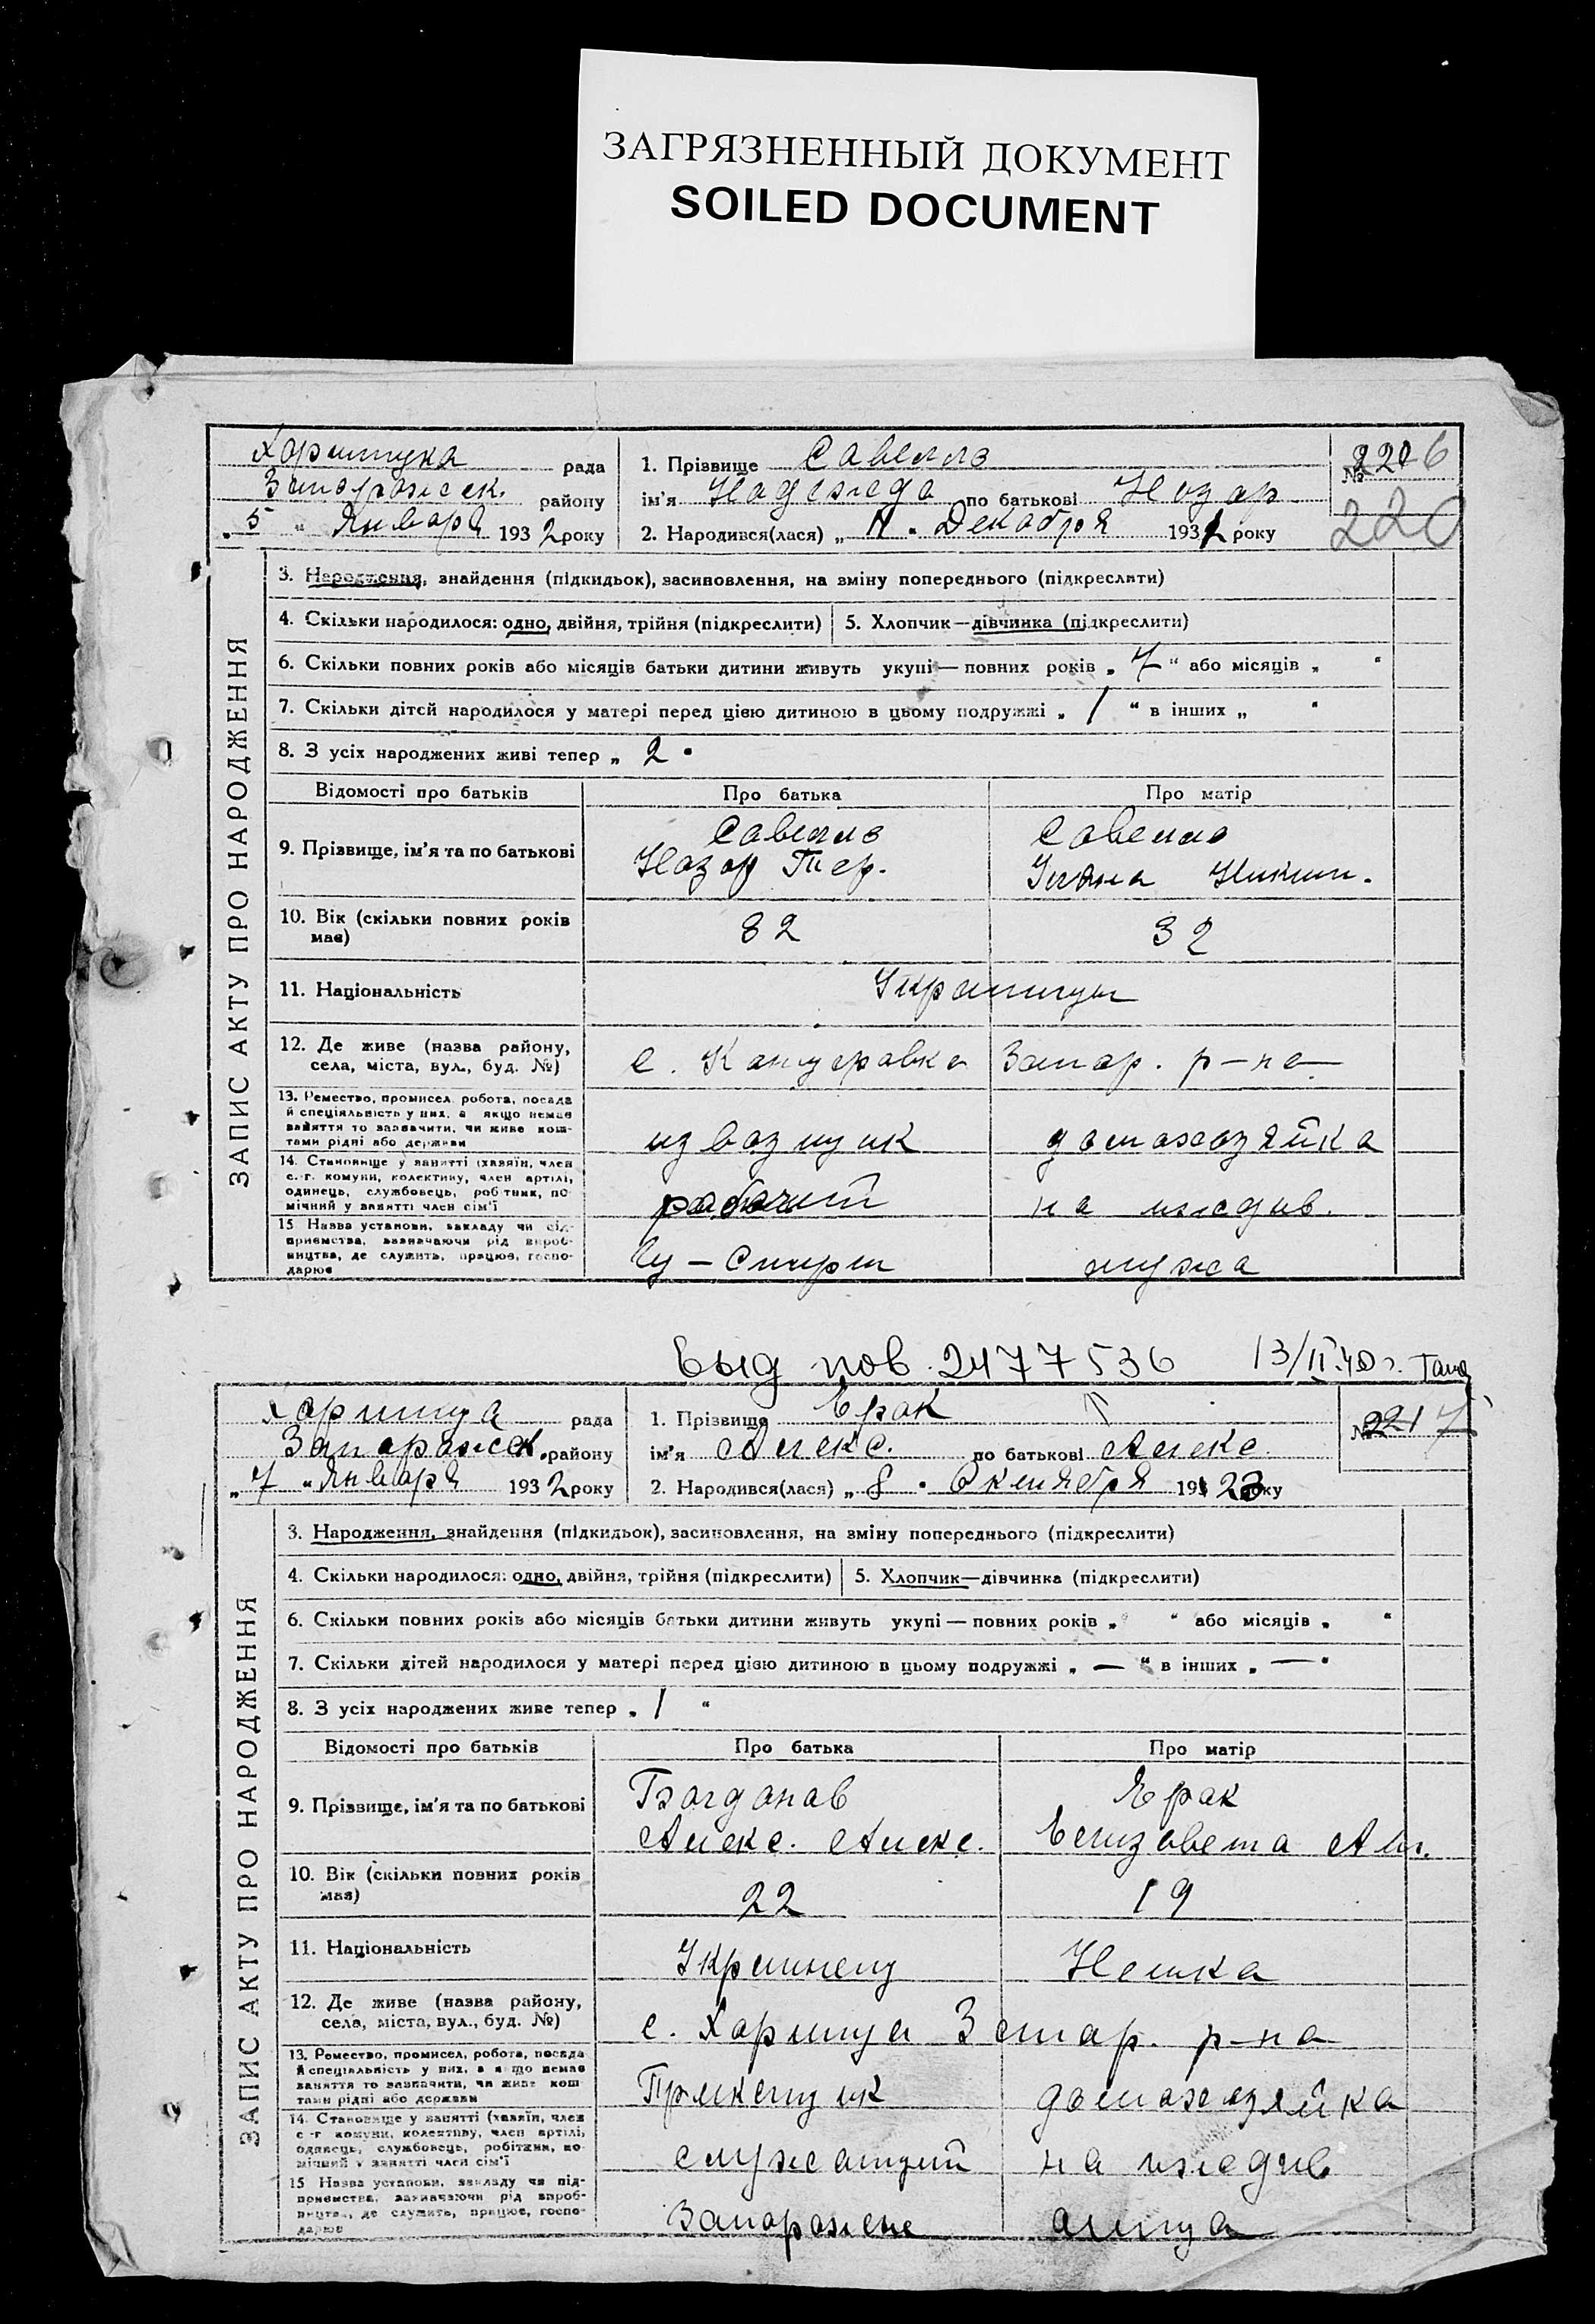 ЗАГРЯЗНЕННЫЙ ДОКУМЕНТ
SOILED DOCUMENT
рада
Запорожск. району
„ 5 “ Января 1932 року
1. Прізвище
ім'я Надежда по батькові Назар
2. Народився(лася) „ “ Декабря 1931 року
№ 6
220
ЗАПИС АКТУ ПРО НАРОДЖЕННЯ
3. Народження, знайдення (підкидьок), засиновлення, на зміну попереднього (підкреслити)
4. Скільки народилося: одно, двійня, трійня (підкреслити)
5. Хлопчик—дівчинка (підкреслити)
6. Скільки повних років або місяців батьки дитини живуть укупі—повних років „ 7 “ або місяців „ “
7. Скільки дітей народилося у матері перед цією дитиною в цьому подружжі „ 1 “ в інших „ “
8. З усіх народжених живі тепер „ 2 “
Відомості про батьків Про батька Про матір
9. Прізвище, ім'я та по батькові
Назар Никит.
10. Вік (скільки повних років має) 32 32
11. Національність Украинцы
12. Де живе (назва району, села, міста, вул., буд. №) с. Канцеровка Запор. р-на
13. Ремество, промисел, робота, посада й спеціяльність у них, а якщо немає заняття то зазначити, чи живе коштами рідні або держави
извозчик домохозяйка
14. Становище у занятті (хазяїн, член с.-г. комуни, колективу, член артілі, одинець, службовець, робітник, помічний у занятті член сім'ї
рабочий на иждив.
15 Назва установи, закладу чи підприємства, зазначаючи рід виробництва, де служить, працює, господарює
мужа
Выд пов. 2477536 13/II.40 г.
Хортица рада
Запорожск. району
„ 7 “ Января 1932 року
1. Прізвище Ерак
ім'я Алекс. по батькові Алекс.
2. Народився(лася) „ 8 “ Октября 1923 року
№ 7
ЗАПИС АКТУ ПРО НАРОДЖЕННЯ
3. Народження, знайдення (підкидьок), засиновлення, на зміну попереднього (підкреслити)
4. Скільки народилося: одно, двійня, трійня (підкреслити)
5. Хлопчик—дівчинка (підкреслити)
6. Скільки повних років або місяців батьки дитини живуть укупі—повних років „ “ або місяців „ “
7. Скільки дітей народилося у матері перед цією дитиною в цьому подружжі „ — “ в інших „ — “
8. З усіх народжених живе тепер „ 1 “
Відомості про батьків Про батька Про матір
9. Прізвище, ім'я та по батькові
Богданов Ерак
Алекс. Алекс. Елизовета
10. Вік (скільки повних років має) 22 19
11. Національність Украинец Немка
12. Де живе (назва району, села, міста, вул., буд. №) с. Хортица Запор. р-на
13. Ремество, промисел, робота, посада й спеціяльність у них, а якщо немає заняття то зазначити, чи живе коштами рідні або держави
домохозяйка
14. Становище у занятті (хазяїн, член с.-г. комуни, колективу, член артілі, одинець, службовець, робітник, помічний у занятті член сім'ї
служащий на иждив
15 Назва установи, закладу чи підприємства, зазначаючи рід виробництва, де служить, працює, господарює